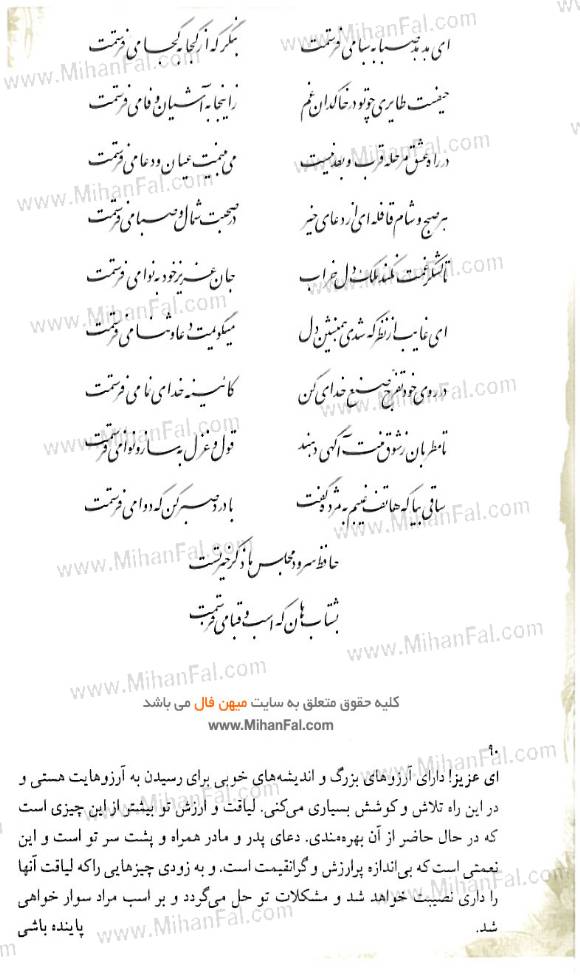 ای هدهد صبا به سبا می‌فرستمت بنگر که از کجا به کجا می‌فرستمت
حیفست طایری چو تو در خاکدان غم زاینجا به آشیان وفا می‌فرستمت
در راه عشق مرحله قرب و بعد نیست می‌بینمت عیان و دعا می‌فرستمت
هر صبح و شام قافله‌ای از دعای خیر در صحبت شمال و صبا می‌فرستمت
تا لشکر غمت نکند ملک دل خراب جان عزیز خود به نوا می‌فرستمت
ای غایب از نظر که شدی همنشین دل میگویمت دعا و ثنا می‌فرستمت
در روی خود تفرج صنع خدای کن کائینه خدای نما می‌فرستمت
تا مطربان ز شوق منت آگهی دهند قول و غزل به ساز و نوا می‌فرستمت
ساقی بیا که هاتف غیبم به مژده گفت با درد صبر کن که دوا می‌فرستمت
حافظ سرود مجلس ما ذکر خیر تست
بشتاب هان که اسب و قبا می‌فرستمت
کلیه حقوق متعلق به سایت میهن فال می باشد
www.MihanFal.com
۹۰
ای عزیز! دارای آرزوهای بزرگ و اندیشه‌های خوبی برای رسیدن به آرزوهایت هستی و
در این راه تلاش و کوشش بسیاری می‌کنی. لیاقت و ارزش تو بیشتر از این چیزی است
که در حال حاضر از آن بهره‌مندی. دعای پدر و مادر همراه و پشت سر تو است و این
نعمتی است که بی‌اندازه پرارزش و گرانقیمت است. و به زودی چیزهایی را که لیاقت آنها
را داری نصیبت خواهد شد و مشکلات تو حل می‌گردد و بر اسب مراد سوار خواهی
شد. پاینده باشی